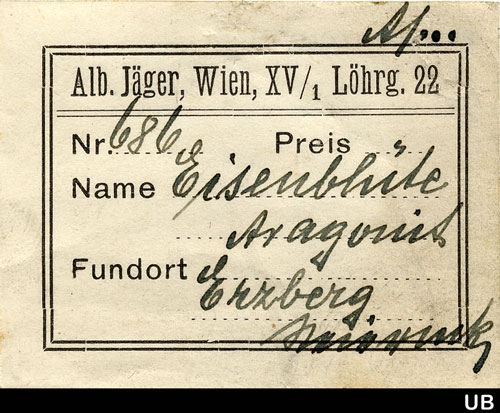 Alb. Jäger, Wien, XV/1 Löhrg. 22
Nr. 686 Preis
Name Eisenblüte
Aragonit
Fundort Erzberg
UB